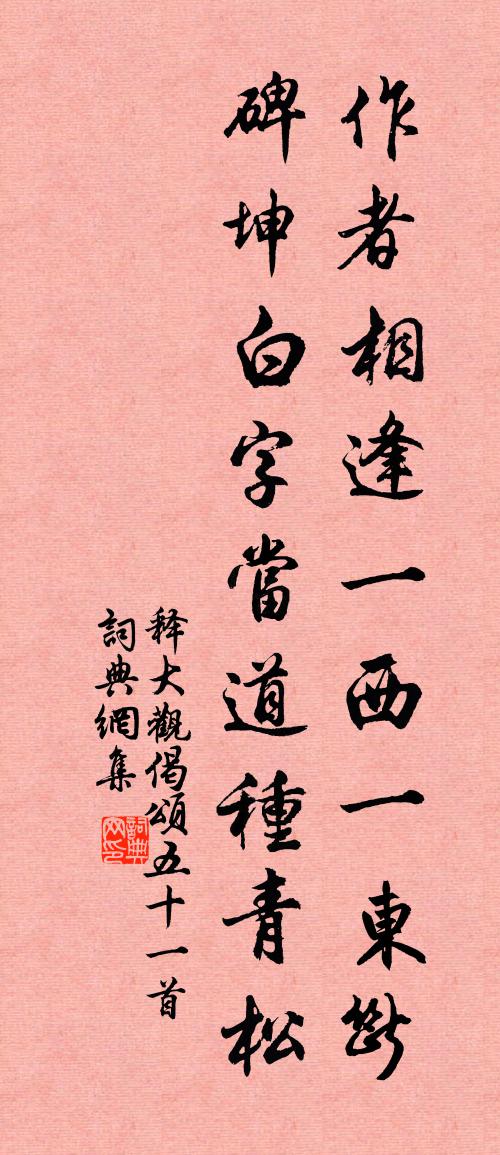 作者相逢一西一東斷
碑坤白字當道種青松
释大觀偈頌五十一首
詞典網集
詞典網印